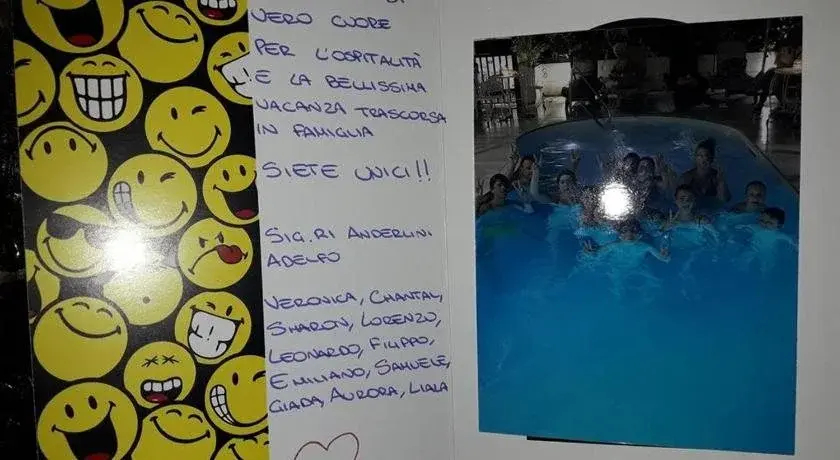 VERO CUORE
PER L'OSPITALITÀ
E LA BELLISSIMA
VACANZA TRASCORSA
IN FAMIGLIA
SIETE UNICI!!
SIG.RI ANDERLINI
ADELFO
VERONICA, CHANTAL,
SHARON, LORENZO,
LEONARDO, FILIPPO,
EMILIANO, SAMUELE,
GIADA, AURORA, LIALA